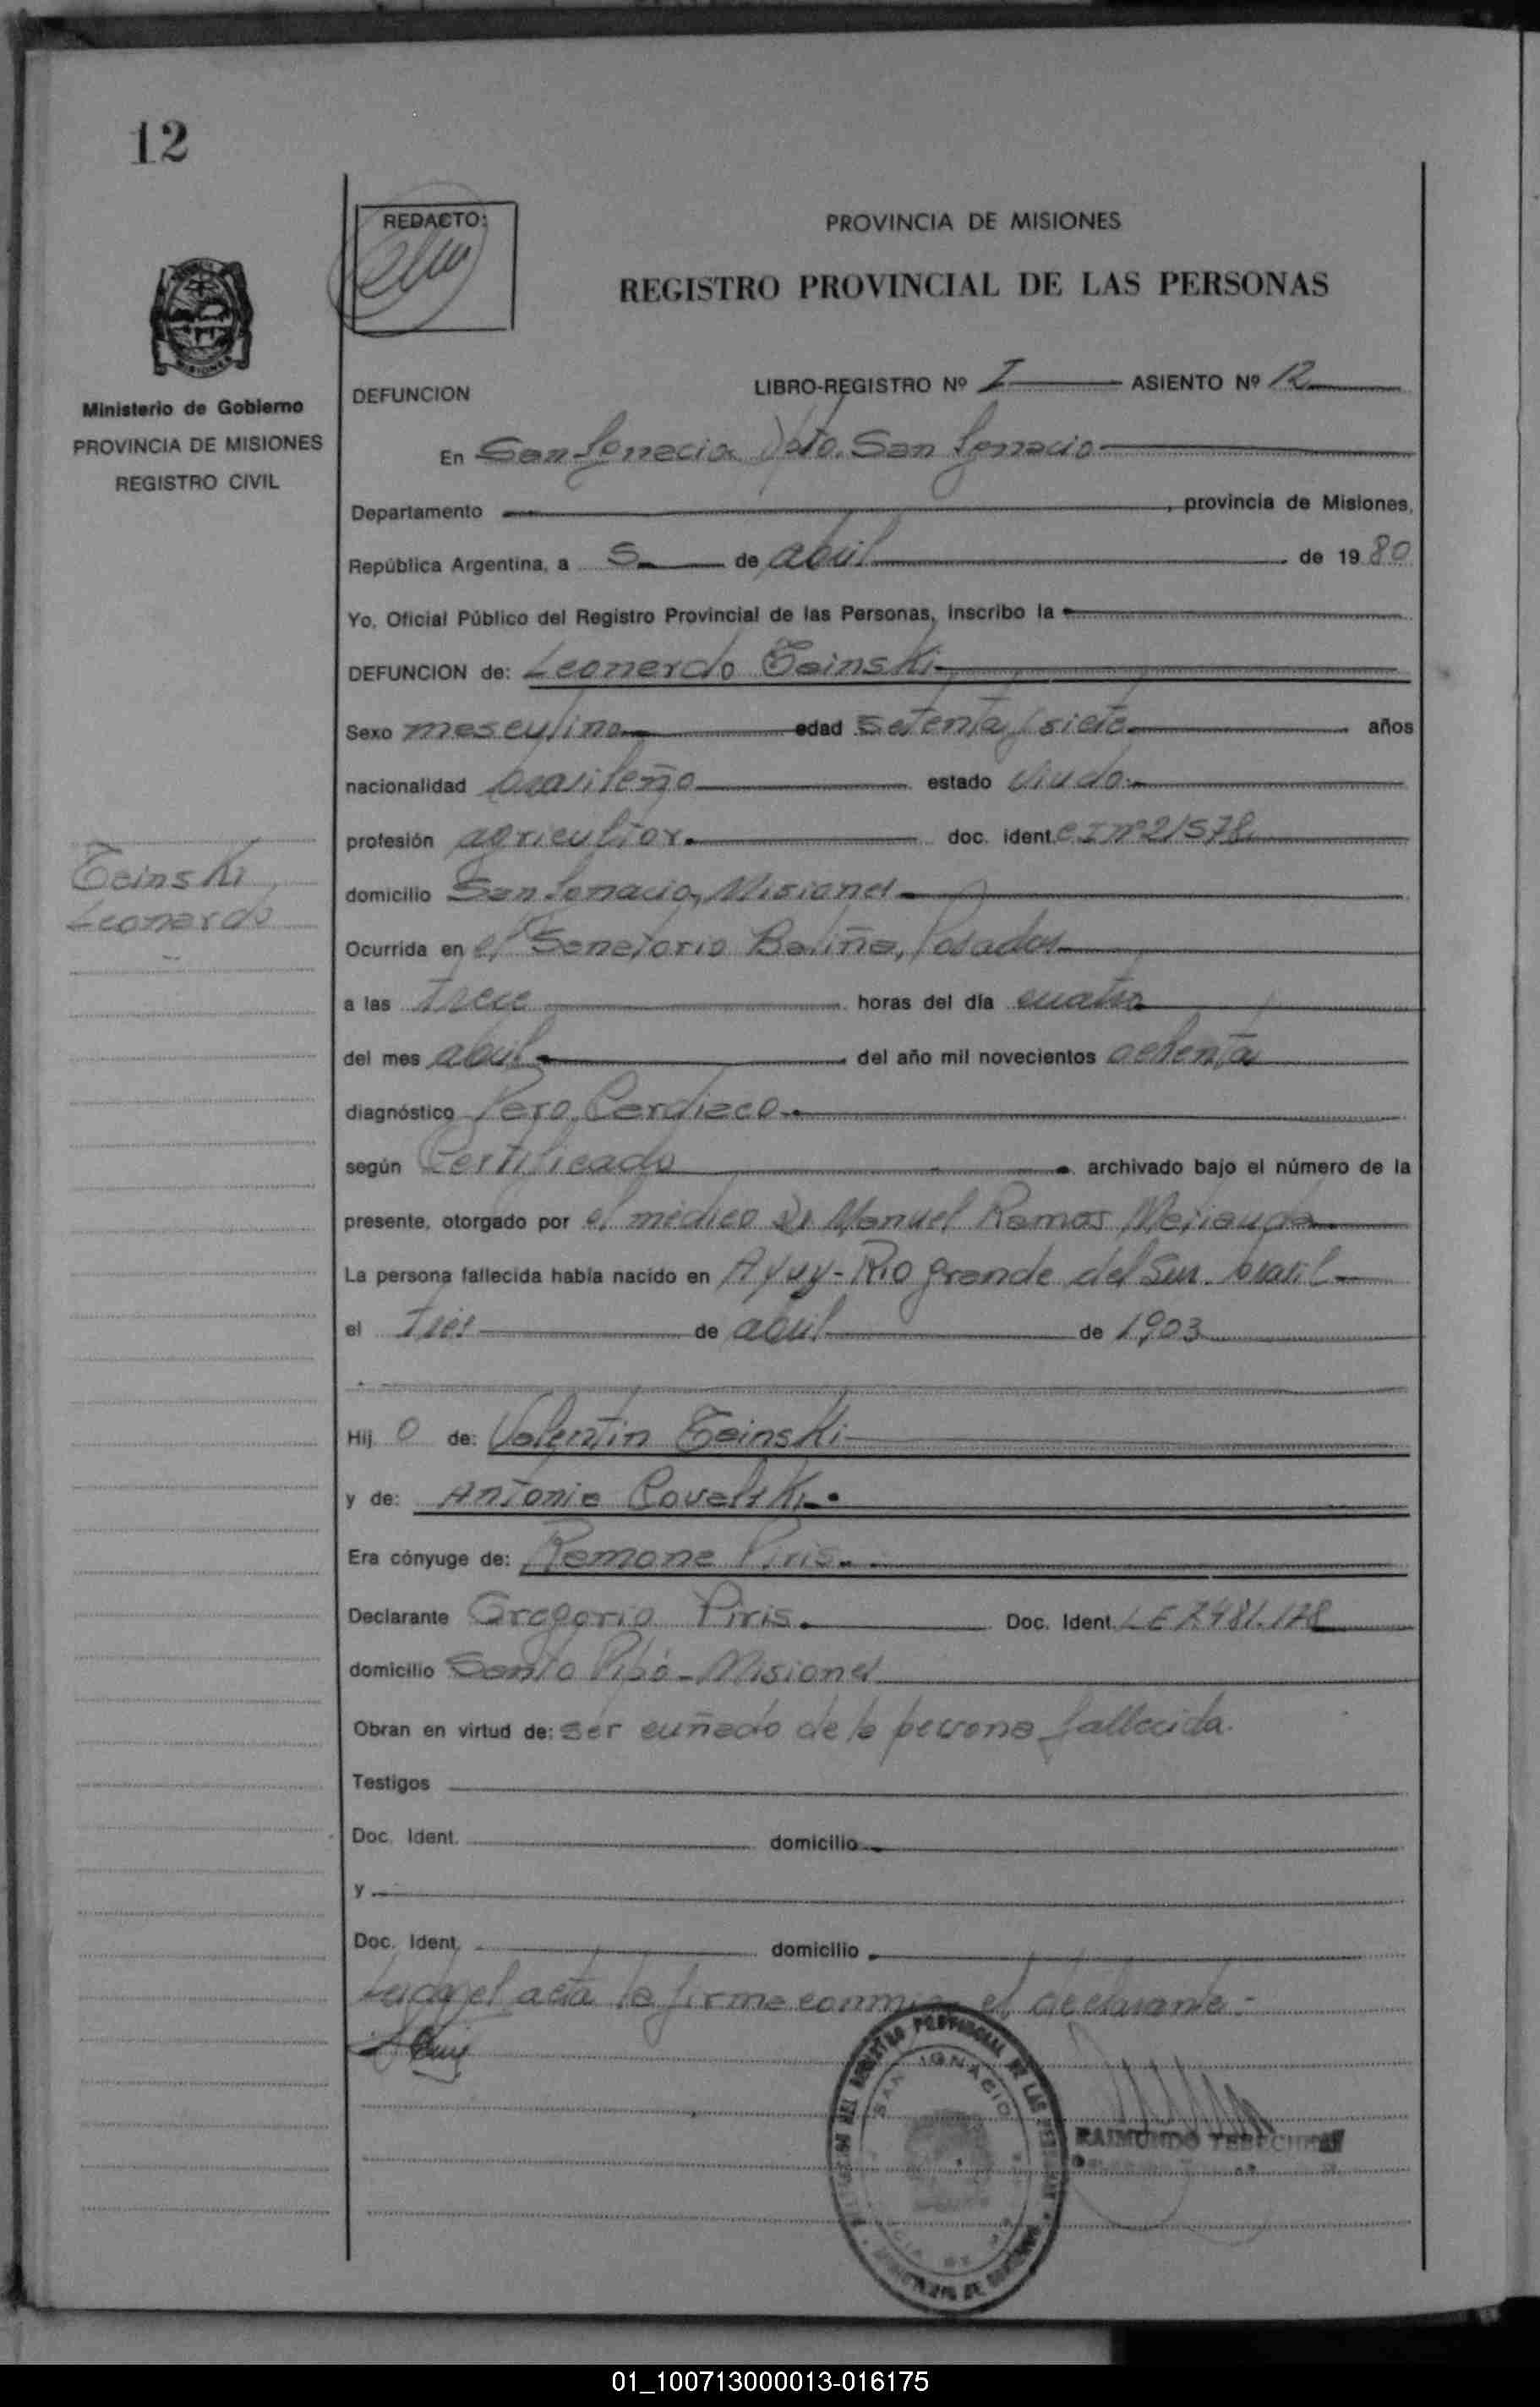 12
REDACTO:
PROVINCIA DE MISIONES
REGISTRO PROVINCIAL DE LAS PERSONAS
MISIONES
Ministerio de Gobierno
PROVINCIA DE MISIONES
REGISTRO CIVIL
DEFUNCION LIBRO-REGISTRO Nº I ASIENTO Nº 12
En San Ignacio Dpto. San Ignacio
Departamento , provincia de Misiones,
República Argentina, a 5 de abril de 1980
Yo, Oficial Público del Registro Provincial de las Personas, inscribo la
DEFUNCION de: Leonardo Tainski
Sexo masculino edad setenta y siete años
nacionalidad brasileño estado viudo
profesión agricultor. doc. ident. C I nº 21578
Tainski,
Leonardo
domicilio San Ignacio, Misiones
Ocurrida en el Sanatorio Baliña, Posadas
a las trece horas del día cuatro
del mes abril del año mil novecientos ochenta
diagnóstico Paro Cardiaco
según Certificado archivado bajo el número de la
presente, otorgado por el médico Dr Manuel Ramos
La persona fallecida había nacido en Ayuy - Rio grande del Sur. brasil
el tres de abril de 1903
Hij o de: Valentin Tainski
y de: Antonia Covalski
Era cónyuge de: Ramona Piris
Declarante Gregorio Piris. Doc. Ident. L E 7.481.178
domicilio Santo Pipó - Misiones
Obran en virtud de: ser cuñado de la persona fallecida.
Testigos
Doc. Ident. domicilio
y
Doc. Ident. domicilio
Leida el acta la firma conmigo el declarante -
DEL REGISTRO PROVINCIAL DE LAS PERSONAS
SAN IGNACIO
RAIMUNDO
01_100713000013-016175